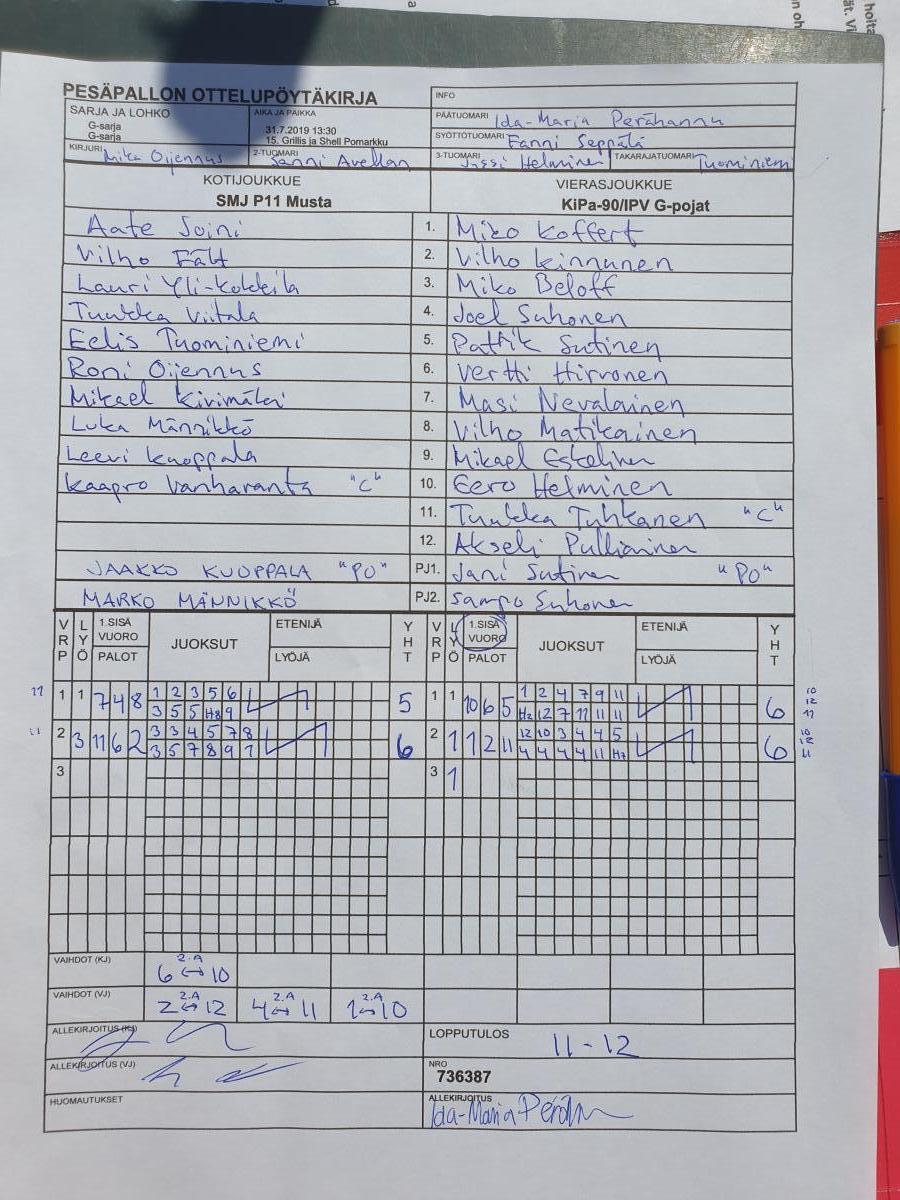 PESÄPALLON OTTELUPÖYTÄKIRJA
INFO
SARJA JA LOHKO
G-sarja
G-sarja
AIKA JA PAIKKA
31.7.2019 13:30
15. Grillis ja Shell Pomarkku
PÄÄTUOMARI Ida-Maria Perähannu
SYÖTTÖTUOMARI Fanni Seppälä
KIRJURI Mika Oijennus
2-TUOMARI Sanni Avellan
3-TUOMARI Jussi Helminen
TAKARAJATUOMARI Tuominiemi
KOTIJOUKKUE
SMJ P11 Musta
VIERASJOUKKUE
KiPa-90/IPV G-pojat
Aate Soini 1. Miko Koffert
Vilho Fält 2. Vilho Kinnunen
Lauri Yli-Kokkila 3. Miko Beloff
Tuukka Viitala 4. Joel Suhonen
Eelis Tuominiemi 5. Patrik Sutinen
Roni Oijennus 6. Vertti Hirvonen
Mikael Kivimäki 7. Masi Nevalainen
Luka Männikkö 8. Vilho Matikainen
Leevi Kuoppala 9. Mikael Eskelinen
Kaapro Vanharanta "C" 10. Eero Helminen
11. Tuukka Tuhkanen "C"
12. Akseli Pulliainen
JAAKKO KUOPPALA "PO" PJ1. Jani Sutinen "PO"
MARKO MÄNNIKKÖ PJ2. Sampo Suhonen
VRP LYÖ 1.SISÄ VUORO PALOT JUOKSUT ETENIJÄ LYÖJÄ YHT VRP LYÖ 1.SISÄ VUORO PALOT JUOKSUT ETENIJÄ LYÖJÄ YHT
11 1 1 7 4 8 1 2 3 5 6 5 1 1 10 6 5 1 2 4 7 9 11 6 10 12 11
3 5 5 H8 9 H2 12 7 11 11 11
11 2 3 11 6 2 3 3 4 5 7 8 6 2 1 1 2 11 12 10 3 4 4 5 6 10 12 11
3 5 7 8 9 1 4 4 4 4 11 H7
3 3 1
VAIHDOT (KJ) 2.A 6 ↔ 10
VAIHDOT (VJ) 2.A 2 ↔ 12 2.A 4 ↔ 11 2.A 1 ↔ 10
ALLEKIRJOITUS (KJ)
LOPPUTULOS 11-12
ALLEKIRJOITUS (VJ)
NRO
736387
HUOMAUTUKSET
ALLEKIRJOITUS
Ida-Maria